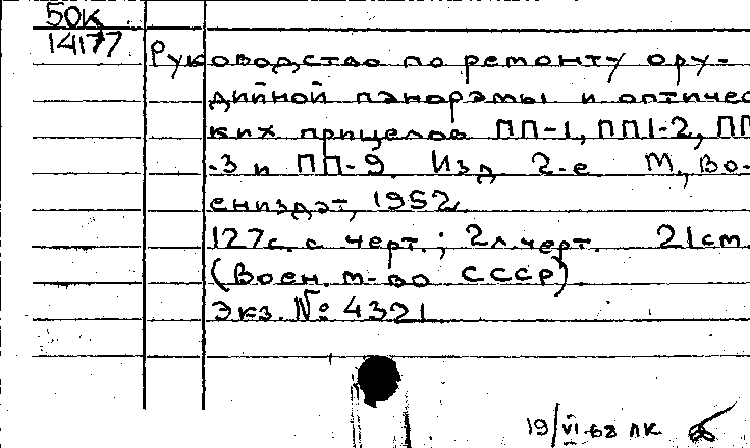 50К
14177
Руководство по ремонту ору-
дийной панорамы и оптичес
ких прицелов ПП-1, ПП1-2, ПП
-3 и ПП-9. Изд. 2-е М., Во-
ениздат, 1952.
127с. с черт.; 2л.черт. 21cm.
(Воен. м-во СССР)
Экз. № 4321
19/VI-68 ЛК